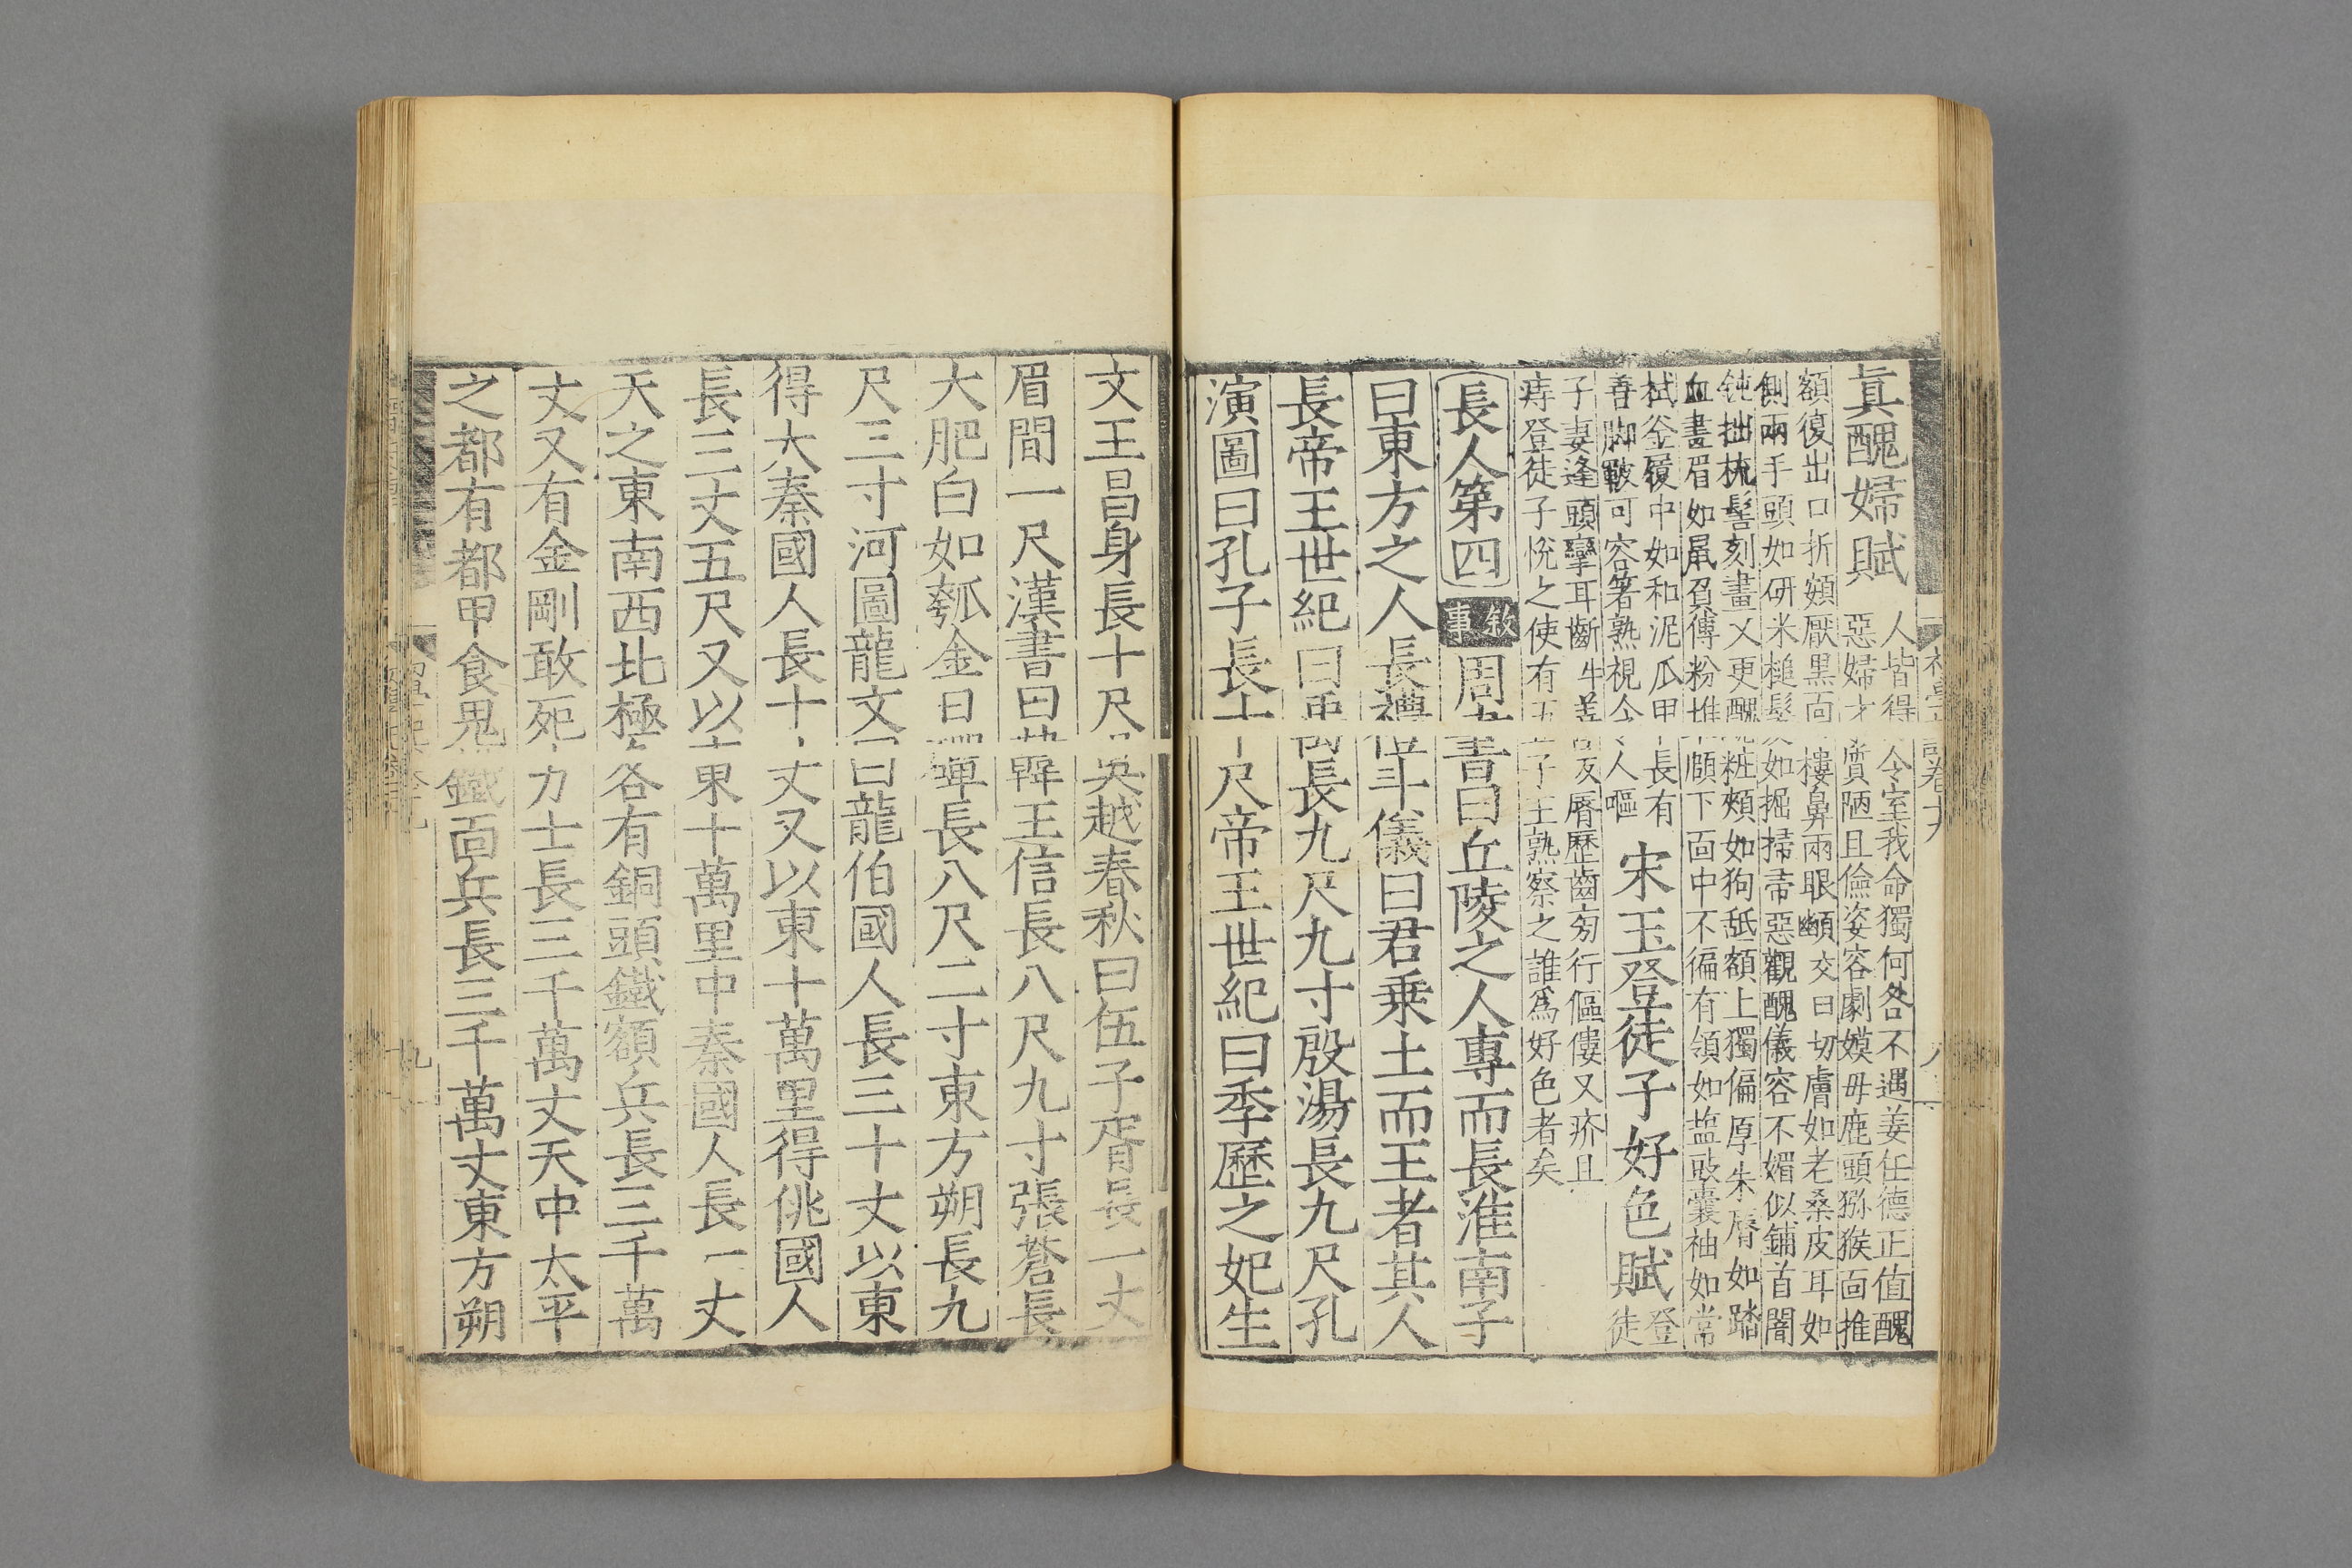 真醜婦賦 人皆得令室我命獨何咎不遇姜任德正值醜
惡婦才質陋且儉姿容劇嫫母鹿頭獼猴面推
額復出口折頞厭黑面樓鼻兩眼䫜交曰切膚如老桑皮耳如
側兩手頭如研米槌髮如掘掃帚惡觀醜儀容不媚似鋪首闇
鈍拙梳髻刻畫又更醜粧頰如狗舐額上獨偏厚朱唇如踏
血畫眉如鼠負傅粉堆頤下面中不徧有領如盐豉囊袖如常
拭釡履中如和泥瓜甲長有
善脚皸可容箸熟視令人嘔 宋玉登徒子好色賦 登徒
子妻逢頭攣耳齗牛善反脣歷齒旁行傴僂又疥且
痔登徒子悅之使有五子王熟察之誰爲好色者矣
長人第四 敘事 周書曰丘陵之人專而長淮南子
曰東方之人長禮斗儀曰君乗土而王者其人
長帝王世紀曰禹長九尺九寸殷湯長九尺孔
演圖曰孔子長十尺帝王世紀曰季歷之妃生
文王昌身長十尺吳越春秋曰伍子胥長一丈
眉間一尺漢書曰韓王信長八尺九寸張蒼長
大肥白如瓠金日磾長八尺二寸東方朔長九
尺三寸河圖龍文曰龍伯國人長三十丈以東
得大秦國人長十丈又以東十萬里得佻國人
長三丈五尺又以東十萬里中秦國人長一丈
天之東南西北極各有銅頭鐵額兵長三千萬
丈又有金剛敢死力士長三千萬丈天中太平
之都有都甲食鬼鐵面兵長三千萬丈東方朔